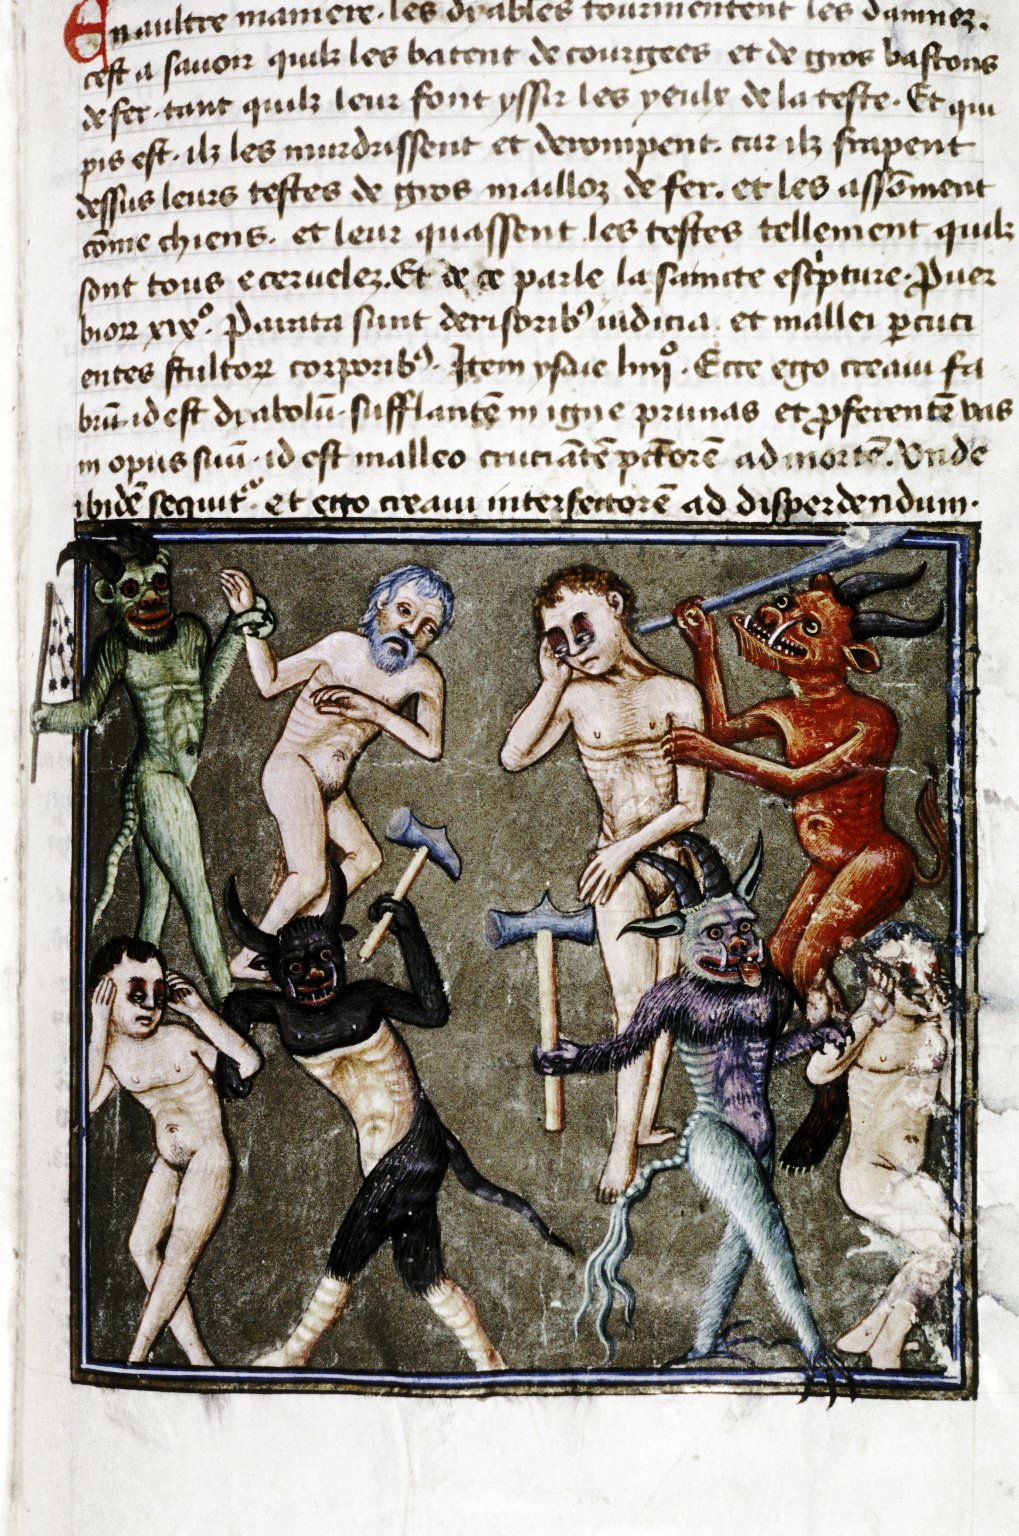 En aultre maniere. les dyables tourmentent les damnez.
cest a savoir quilz les batent de courgees et de gros bastons
de fer. tant quilz leur font yssir les yeulx de la teste. Et qui
pis est. ilz les murdrissent et derompent. car ilz frapent
dessus leurs testes de gros mailloz de fer. et les assōment
cōme chiens. et leur quassent les testes tellement quilz
sont tous ecervelez. Et de ce parle la saincte escripture. Prver
biorꝝ xixº. Parata sunt derisoribꝰ iudicia. et mallei ꝑcuci
entes stultorꝝ corporibꝰ. Item ysaie liiiiº. Ecce ego creavi fa
brū. id est dyabolū. sufflantē in igne prunas et ꝓferentē vas
in opus suū. id est malleo cruciātē pctōrē ad mortē. Unde
ibidē sequit᷒. et ego creavi interfectorē ad disperdendum.